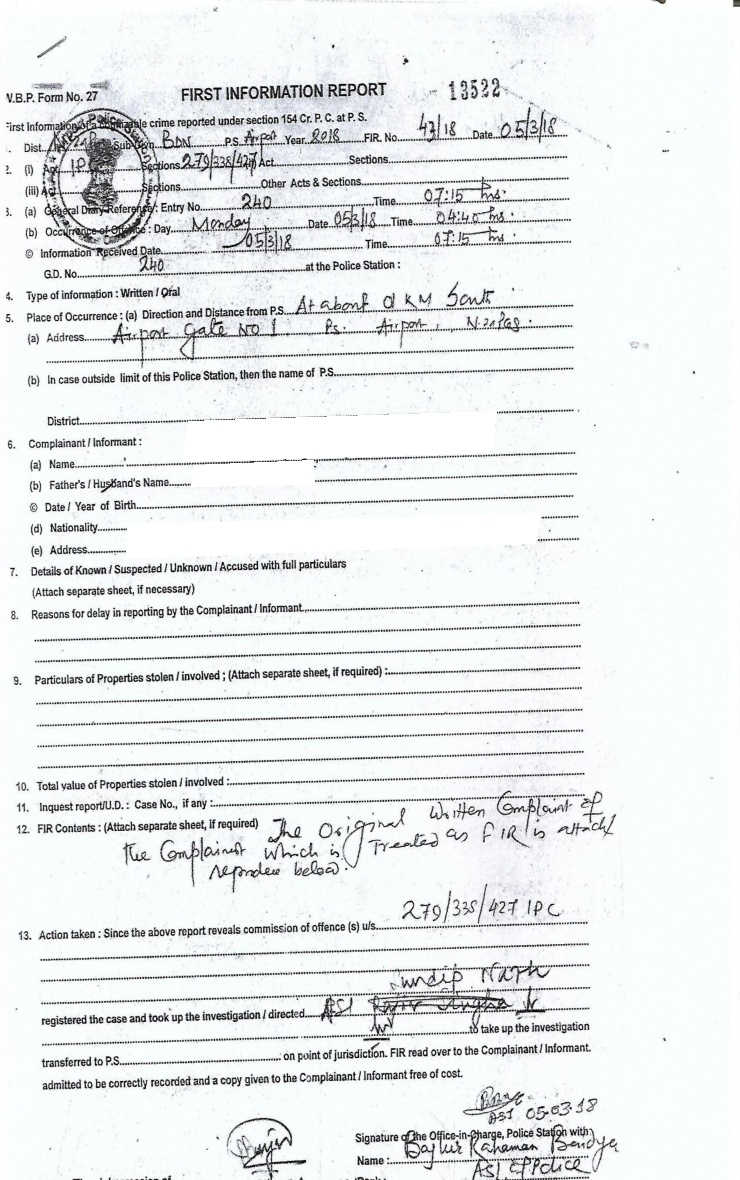 V.B.P. Form No. 27
FIRST INFORMATION REPORT
13522
First Information of a cognizable crime reported under section 154 Cr. P. C. at P. S.
Dist. Sub-Dvn. BDN P.S. Airport Year 2018 FIR. No. 43/18 Date 05/3/18
2. (i) Act IPC Sections 279/338/427 Act Sections
(iii) Act Sections Other Acts & Sections
3. (a) General Diary Reference : Entry No. 240 Time 07:15 hrs.
(b) Occurrence of Offence : Day Monday Date 05/3/18 Time 04:40 hrs.
© Information Received Date 05/3/18 Time 07:15 hrs.
G.D. No. 240 at the Police Station :
4. Type of information : Written / Oral
5. Place of Occurrence : (a) Direction and Distance from P.S. At about KM South
(a) Address Airport Gate No 1 Ps. Airport, N. 24 Pgs.
(b) In case outside limit of this Police Station, then the name of P.S.
District
6. Complainant / Informant :
(a) Name
(b) Father's / Husband's Name
© Date / Year of Birth
(d) Nationality
(e) Address
7. Details of Known / Suspected / Unknown / Accused with full particulars
(Attach separate sheet, if necessary)
8. Reasons for delay in reporting by the Complainant / Informant
9. Particulars of Properties stolen / involved ; (Attach separate sheet, if required) :
10. Total value of Properties stolen / involved :
11. Inquest report/U.D. : Case No., if any :
12. FIR Contents : (Attach separate sheet, if required) The Original Written Complaint of
the Complainant which is Treated as FIR is attach/
below.
13. Action taken : Since the above report reveals commission of offence (s) u/s. 279/338/427 IPC
Sundip Nath
registered the case and took up the investigation / directed ASI
to take up the investigation
transferred to P.S. on point of jurisdiction. FIR read over to the Complainant / Informant.
admitted to be correctly recorded and a copy given to the Complainant / Informant free of cost.
ASI 05.03.18
Signature of the Office-in-Charge, Police Station with
Name : Rahaman
ASI Police